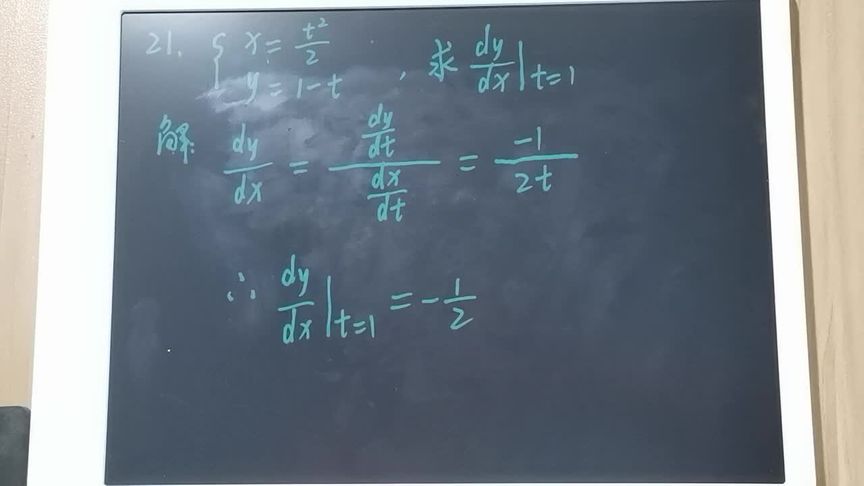 21. { x = t²/2
y = 1-t , 求 dy/dx |t=1
解: dy/dx = (dy/dt)/(dx/dt) = -1/2t
∴ dy/dx |t=1 = -1/2